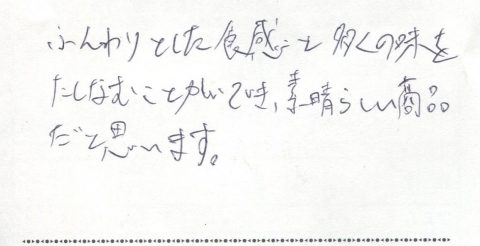 ふんわりとした食感と多くの味を
たしなむことができ、素晴らしい商品
だと思います。